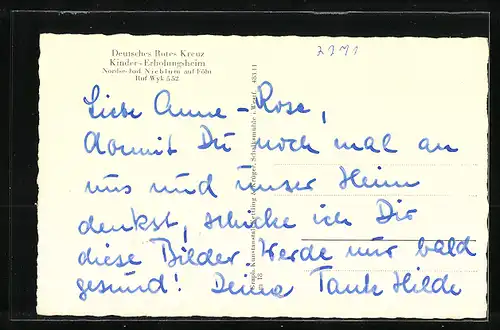 Deutsches Rotes Kreuz
Kinder-Erholungsheim
Nordseebad Nieblum auf Föhr
Ruf Wyk 552
2291
Liebe Anne-Rose,
damit Du noch mal an
uns und unser Heim
denkst, schicke ich Dir
diese Bilder. Werde nur bald
gesund! Deine Tante Hilde